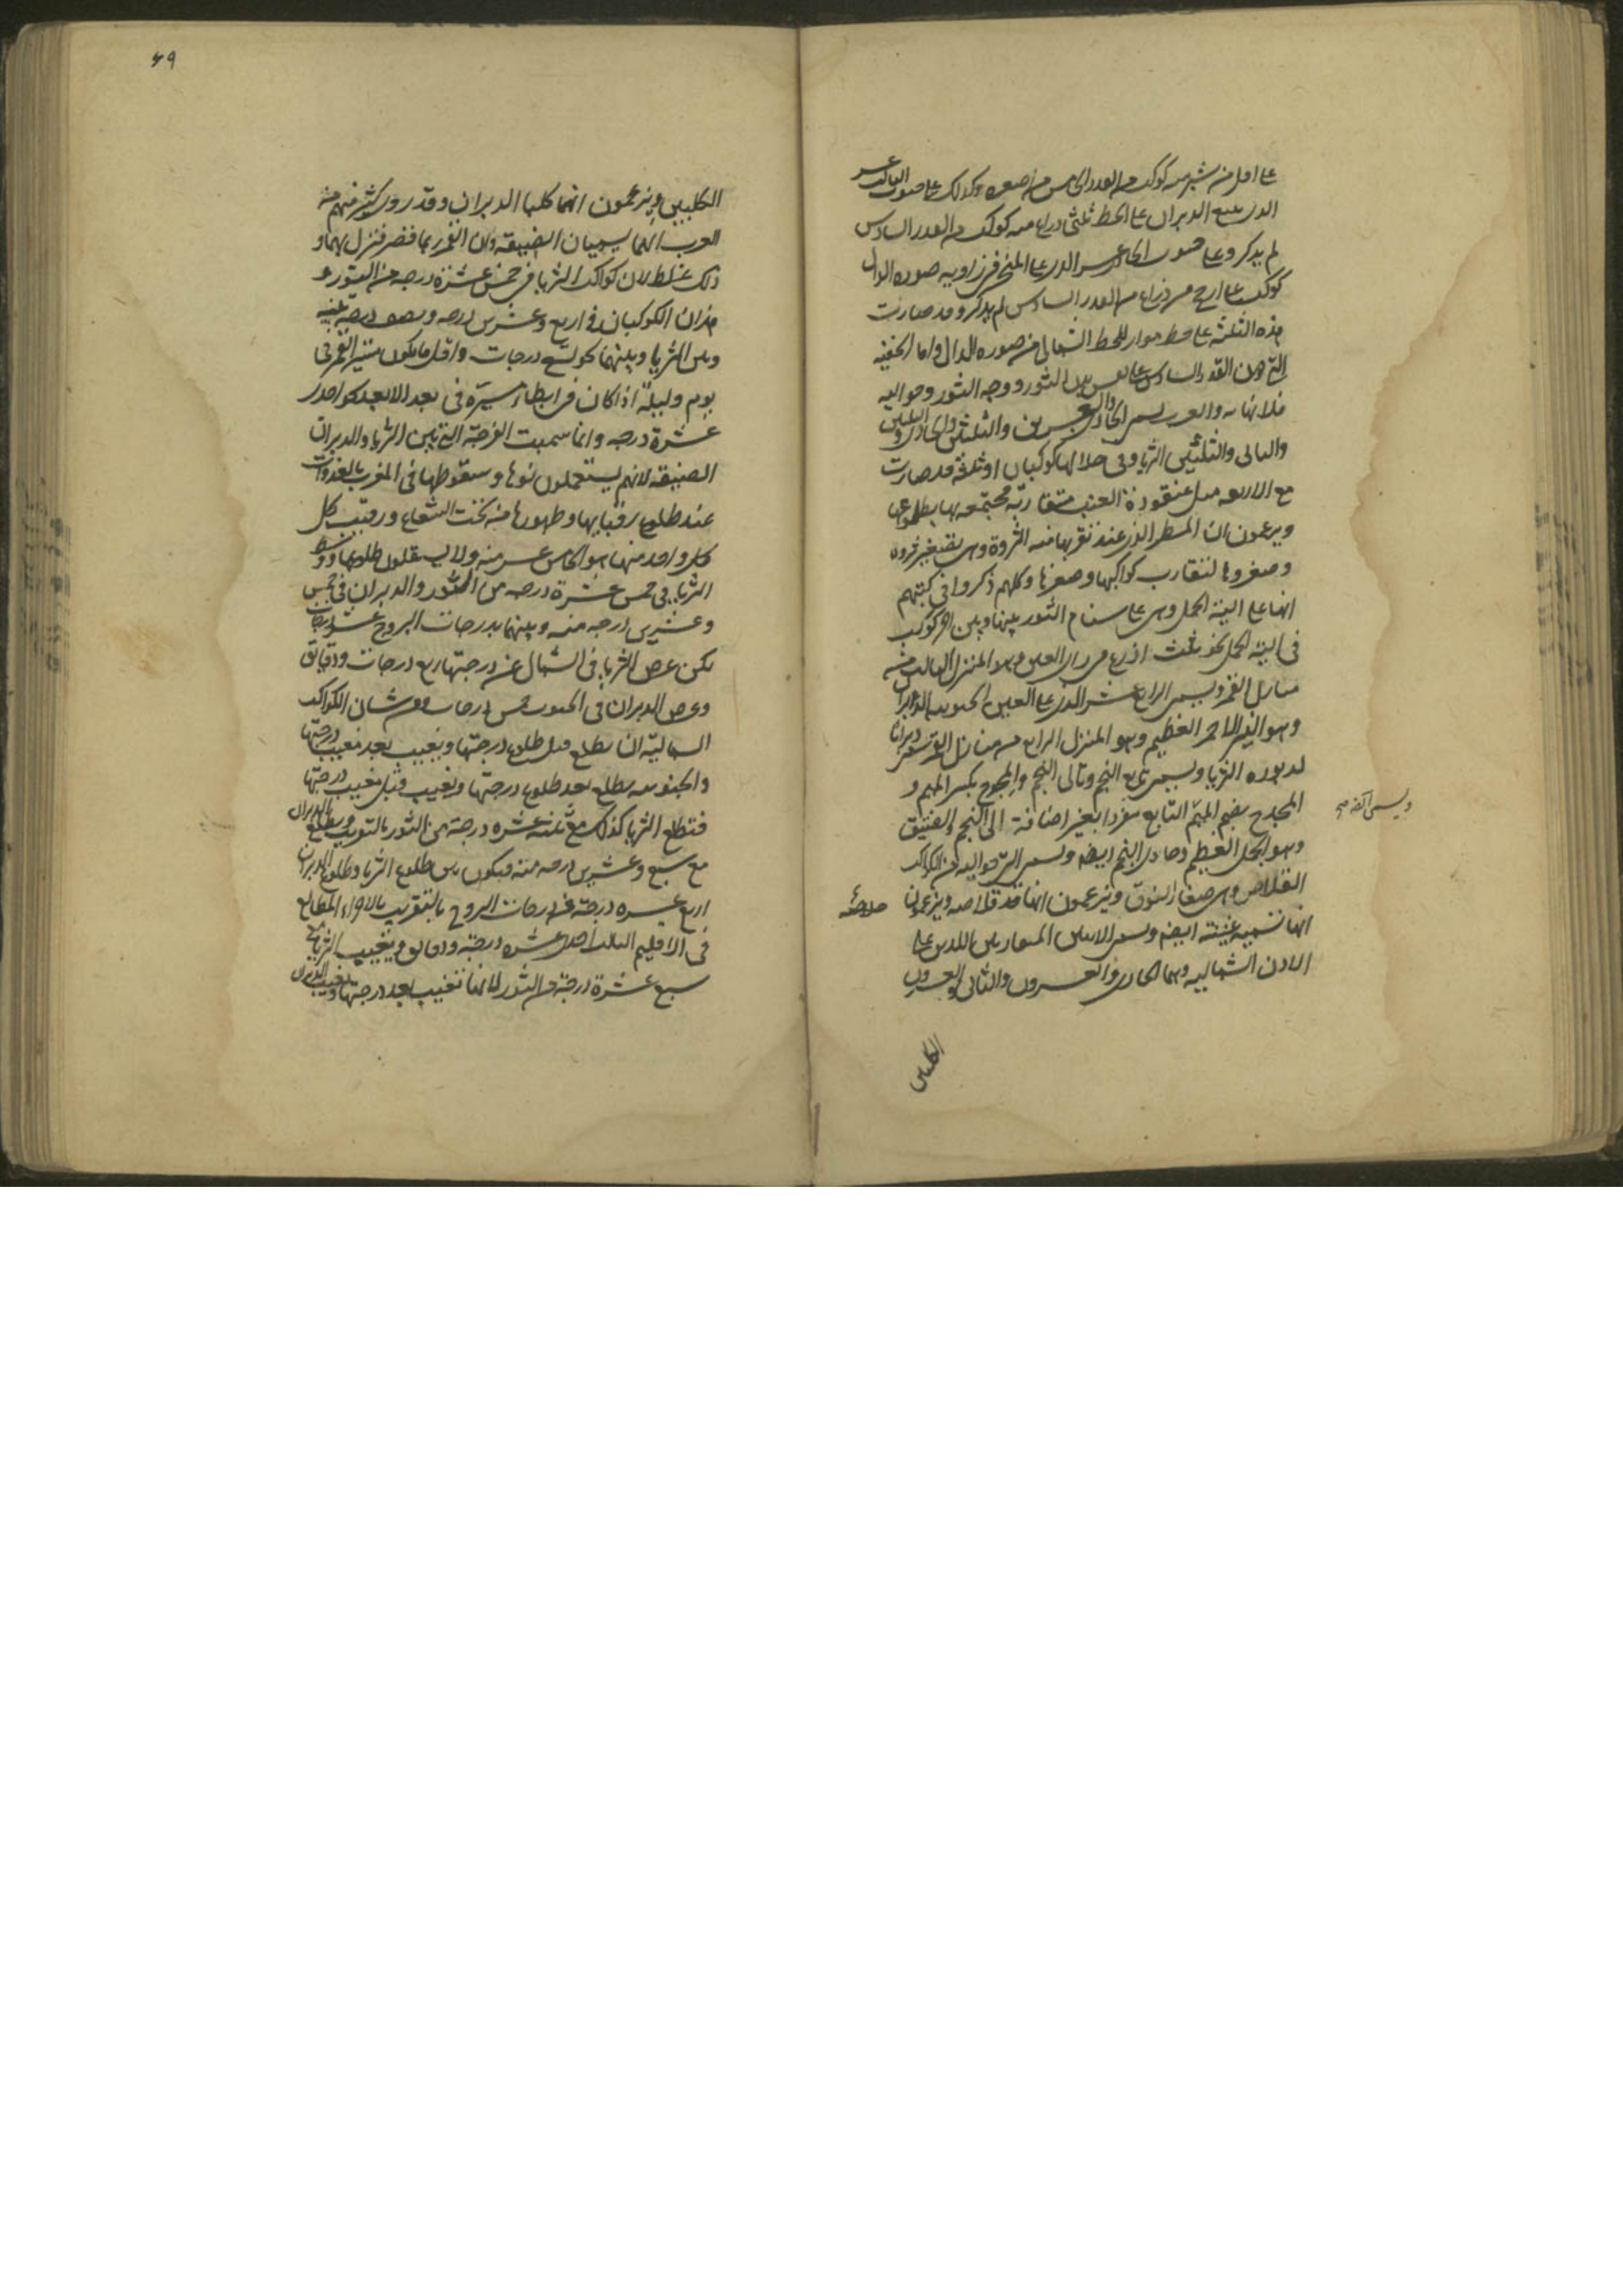 على اقل من شبر منه كوكب من القدر الخامس من اصغره وكذلك على جنوب الثالث عشر
الذي يتبع الدبران على الخط ثلثى ذراع منه كوكب من القدر السادس
لم يذكر وعلى جنوب الحادى عشر الذي على المنخر في زاوية صوره الدال
كوكب على ارجح من ذراع من القدر السادس لم يذكر وقد صارت
هذه الثلثة على خط مواز للخط الشمالى من صوره الدال واما الخفيه
التي من القدر السادس على الثور ووجه الثور وحواليه
فلا نهايه والعرب تسمى والعشرين والثلثين والحادى والثلثين
والثانى والثلثين الثريا وفى خلالها كوكبان او ثلثة قد صارت
مع الاربعه مثل عنقودة العنب متقاربة مجتمعه
ويزعمون ان المطر الذي عند نؤيها منه الثروة وهى تصغير ثروه
وصغروها لتقارب كواكبها وصغرها وكلهم ذكروا فى كتبهم
انها على الية الحمل وهى على سنام الثور بينها وبين اخر كوكب
فى الية الحمل نحو ثلث اذرع فى راى العين وهو المنزل الثالث من
منازل القمر ويسمى الرابع عشر الذي على العين الجنوبيه الدبران
وهو النير الاحمر العظيم وهو المنزل الرابع من منازل القمر سمى دبرانا
لدبوره الثريا ويسمى تابع النجم وتالى النجم والمجدح بكسر الميم و
المجدح بضم الميم التابع مفردا بغير اضافة الى النجم والفنيق
وهو الجمل العظيم وحادى النجم ايضا وتسمى التي حواليه من الكواكب
القلاص وهى صغار النوق ويزعمون انها قلاصه ويزعمون
انها تسميه غنيمته ايضا وتسمى الاثنين المتقاربين اللذين على
الاذن الشماليه وهما الحادى والعشرون والثانى والعشرون
الكلبين
٤٩
الكلبين ويزعمون انهما كلبا الدبران وقد روى كثير منهم من
العرب انهما يسميان الضيقه وان القمر ربما قصر فنزل بهما و
ذلك غلط لان كواكب الثريا فى خمس عشرة درجه من الثور و
هذان الكوكبان فى اربع وعشرين درجه ونصف درجه منه
وبين الثريا وبينهما نحو تسع درجات واقل ما يكون مسير القمر فى
يوم وليلة اذا كان فى ابطاء مسيره فى بعد الابعد نحو احدى
عشرة درجه وانما سميت الفرجة التي بين الثريا والدبران
الضيقه لانهم يستعملون نوءها وسقوطها فى المغرب بالغدوات
عند طلوع رقبائها وظهورها من تحت الشعاع ورقيب كل
كل واحد منها هو الخامس عشر منه ولا يستعملون طلوعها ووسط
الثريا فى خمس عشرة درجه من الثور والدبران فى خمس
وعشرين درجه منه وبينهما بدرجات البروج عشر درجات
لكن عرض الثريا فى الشمال عن درجتها اربع درجات ودقايق
وعرض الدبران فى الجنوب خمس درجات ومن شان الكواكب
الشماليه ان يطلع قبل طلوع درجتها ويغيب بعد مغيب درجتها
والجنوبيه يطلع بعد طلوع درجتها ويغيب قبل مغيب درجتها
فتطلع الثريا كذلك مع ثلثة عشره درجة من الثور بالتقريب ويطلع الدبران
مع سبع وعشرين درجه منه فيكون بين طلوع الثريا وطلوع الدبران
اربع عشره درجة من درجات البروج بالتقريب
فى الاقليم الثالث احدى عشره درجة ودقايق ويغيب الثريا مع
سبع عشرة درجة من الثور لانها تغيب بعد درجتها ويغيب الدبران